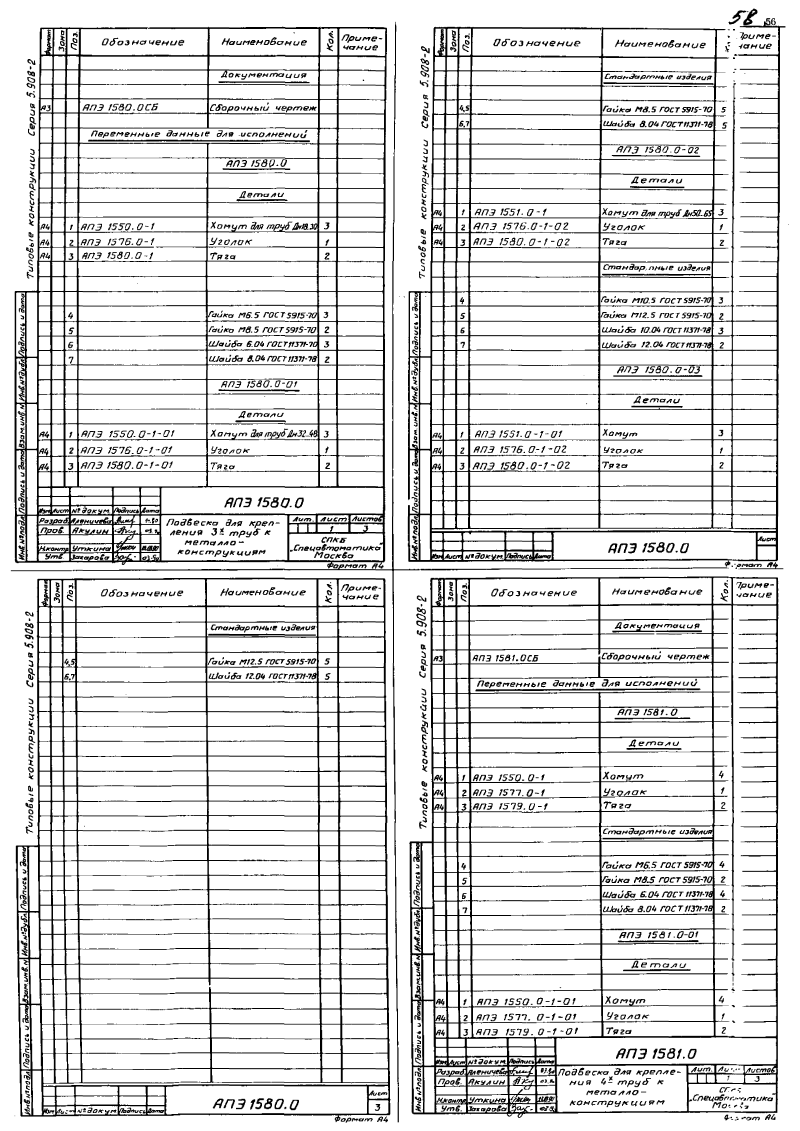 58 56
Серия 5.908-2
Типовые конструкции
Формат Зона Поз. Обозначение Наименование Кол. Примечание
Документация
А3 АПЭ 1580.0СБ Сборочный чертеж
Переменные данные для исполнений
АПЭ 1580.0
Детали
А4 1 АПЭ 1550.0-1 Хомут для труб Дн18.30 3
А4 2 АПЭ 1576.0-1 Уголок 1
А4 3 АПЭ 1580.0-1 Тяга 2
4 Гайка М6.5 ГОСТ 5915-70 3
5 Гайка М8.5 ГОСТ 5915-70 2
6 Шайба 6.04 ГОСТ 11371-78 3
7 Шайба 8.04 ГОСТ 11371-78 2
АПЭ 1580.0-01
Детали
А4 1 АПЭ 1550.0-1-01 Хомут для труб Дн32.48 3
А4 2 АПЭ 1576.0-1-01 Уголок 1
А4 3 АПЭ 1580.0-1-01 Тяга 2
Инв.№подл. Подпись и дата Взам.инв.№ Инв.№дубл. Подпись и дата
АПЭ 1580.0
Изм. Лист № докум. Подпись Дата
Разраб. Аленичева
Пров. Акулин
Н.контр. Уткина
Утв. Захарова
Подвеска для крепления 3х труб к металлоконструкциям
Лит. Лист Листов
1 3
СПКБ
„Спецавтоматика"
Москва
Формат А4
Серия 5.908-2
Типовые конструкции
Формат Зона Поз. Обозначение Наименование Примечание
Стандартные изделия
4,5 Гайка М8.5 ГОСТ 5915-70 5
6,7 Шайба 8.04 ГОСТ 11371-78 5
АПЭ 1580.0-02
Детали
А4 1 АПЭ 1551.0-1 Хомут для труб Дн50.65 3
А4 2 АПЭ 1576.0-1-02 Уголок 1
А4 3 АПЭ 1580.0-1-02 Тяга 2
Стандартные изделия
4 Гайка М10.5 ГОСТ 5915-70 3
5 Гайка М12.5 ГОСТ 5915-70 2
6 Шайба 10.04 ГОСТ 11371-78 3
7 Шайба 12.04 ГОСТ 11371-78 2
АПЭ 1580.0-03
Детали
А4 1 АПЭ 1551.0-1-01 Хомут 3
А4 2 АПЭ 1576.0-1-02 Уголок 1
А4 3 АПЭ 1580.0-1-02 Тяга 2
Инв.№подл. Подпись и дата Взам.инв.№ Инв.№дубл. Подпись и дата
Изм. Лист № докум. Подпись Дата
АПЭ 1580.0
Лист
Формат А4
Серия 5.908-2
Типовые конструкции
Формат Зона Поз. Обозначение Наименование Кол. Примечание
Стандартные изделия
4,5 Гайка М12.5 ГОСТ 5915-70 5
6,7 Шайба 12.04 ГОСТ 11371-78 5
Инв.№подл. Подпись и дата Взам.инв.№ Инв.№дубл. Подпись и дата
Изм. Лист № докум. Подпись Дата
АПЭ 1580.0
Лист
3
Формат А4
Серия 5.908-2
Типовые конструкции
Формат Зона Поз. Обозначение Наименование Кол. Примечание
Документация
А3 АПЭ 1581.0СБ Сборочный чертеж
Переменные данные для исполнений
АПЭ 1581.0
Детали
А4 1 АПЭ 1550.0-1 Хомут 4
А4 2 АПЭ 1577.0-1 Уголок 1
А4 3 АПЭ 1579.0-1 Тяга 2
Стандартные изделия
4 Гайка М6.5 ГОСТ 5915-70 4
5 Гайка М8.5 ГОСТ 5915-70 2
6 Шайба 6.04 ГОСТ 11371-78 4
7 Шайба 8.04 ГОСТ 11371-78 2
АПЭ 1581.0-01
Детали
А4 1 АПЭ 1550.0-1-01 Хомут 4
А4 2 АПЭ 1577.0-1-01 Уголок 1
А4 3 АПЭ 1579.0-1-01 Тяга 2
Инв.№подл. Подпись и дата Взам.инв.№ Инв.№дубл. Подпись и дата
АПЭ 1581.0
Изм. Лист № докум. Подпись Дата
Разраб. Аленичева
Пров. Акулин
Н.контр. Уткина
Утв. Захарова
Подвеска для крепления 4х труб к металлоконструкциям
Лит. Листов
3
„Спецавтоматика"
Москва
Формат А4